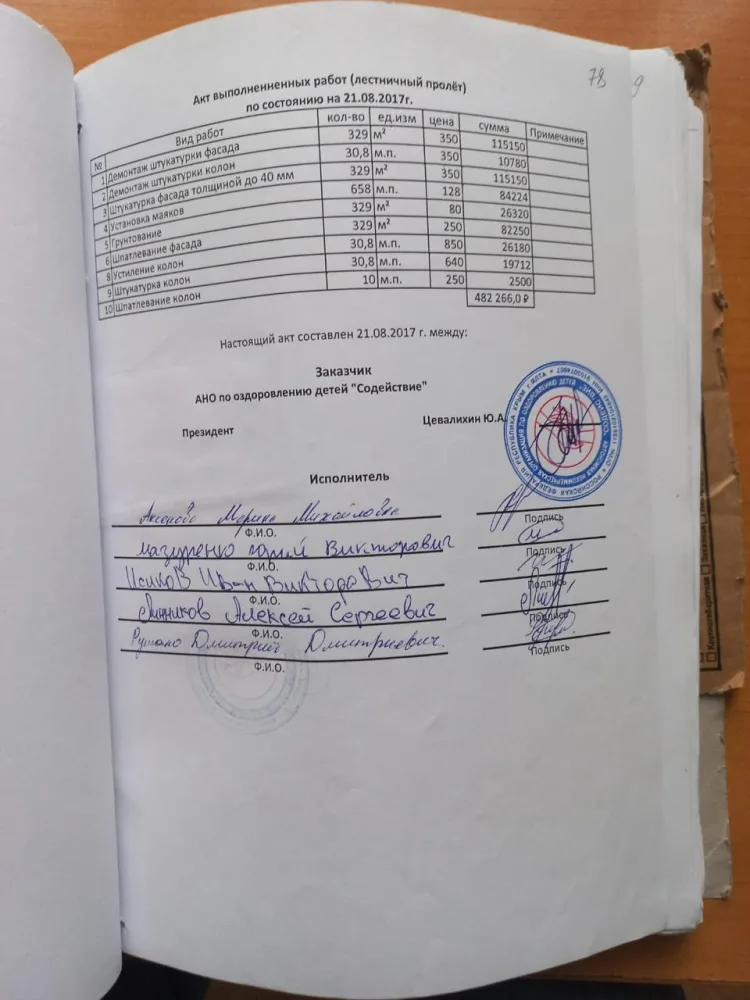 78 9
Акт выполненненных работ (лестничный пролёт)
по состоянию на 21.08.2017г.
№ Вид работ кол-во ед.изм цена сумма Примечание
1 Демонтаж штукатурки фасада 329 м² 350 115150
2 Демонтаж штукатурки колон 30,8 м.п. 350 10780
3 Штукатурка фасада толщиной до 40 мм 329 м² 350 115150
4 Установка маяков 658 м.п. 128 84224
5 Грунтование 329 м² 80 26320
6 Шпатлевание фасада 329 м² 250 82250
8 Устиление колон 30,8 м.п. 850 26180
9 Штукатурка колон 30,8 м.п. 640 19712
10 Шпатлевание колон 10 м.п. 250 2500
482 266,0 ₽
Настоящий акт составлен 21.08.2017 г. между:
Заказчик
АНО по оздоровлению детей "Содействие"
Президент Цевалихин Ю.А.
Исполнитель
Марина Михайловна
Ф.И.О. Подпись
Мазуренко Юрий Викторович
Ф.И.О. Подпись
Исиков Иван Викторович
Ф.И.О. Подпись
Линников Алексей Сергеевич
Ф.И.О. Подпись
Дмитрий Дмитриевич.
Ф.И.О. Подпись